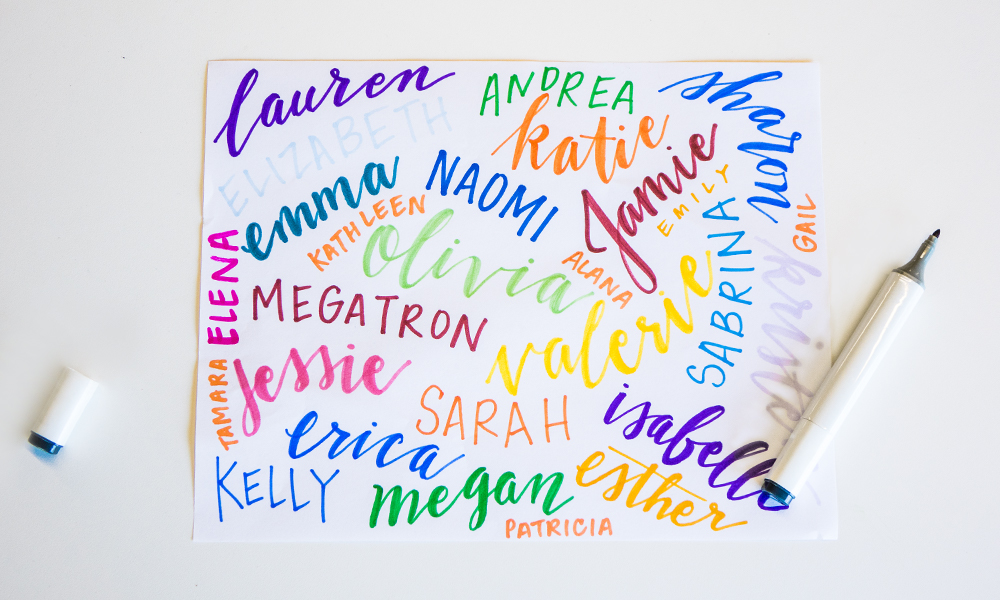 lauren
ANDREA
sharon
ELIZABETH
katie
emma
NAOMI
Jamie
EMILY
KATHLEEN
olivia
GAIL
ELENA
ALANA
SABRINA
MEGATRON
valerie
TAMARA
jessie
SARAH
isabelle
erica
KELLY
megan
esther
PATRICIA